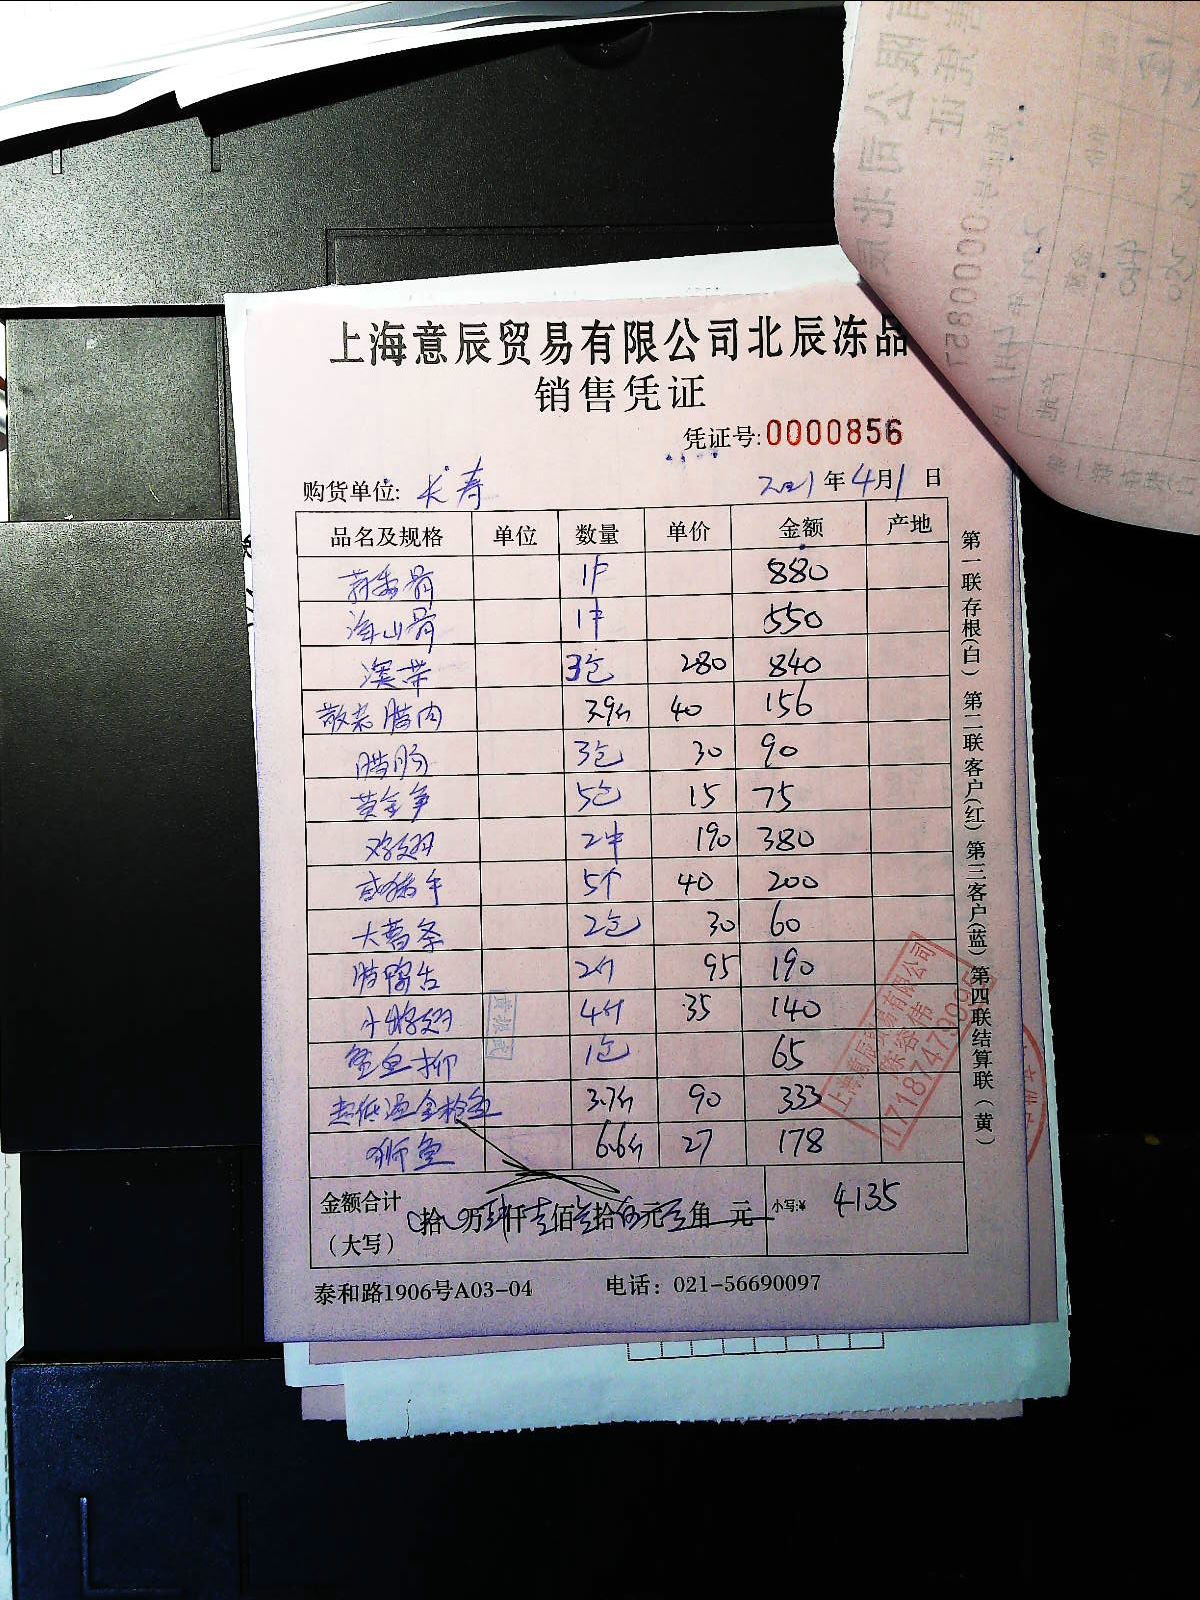 上海意辰贸易有限公司北辰冻品
销售凭证
凭证号:0000856
购货单位: 长寿 2021年4月1日
品名及规格 单位 数量 单价 金额 产地
1件 880
1件 550
澳带 3包 280 840
散装腊肉 3.9斤 40 156
腊肠 3包 30 90
5包 15 75
鸡翅 2件 190 380
咸猪手 5个 40 200
大薯条 2包 30 60
腊鸭舌 2斤 95 190
4斤 35 140
1包 65
超低温金枪鱼 3.7斤 90 333
狮鱼 6.6斤 27 178
金额合计
(大写) 拾 万肆仟壹佰叁拾伍元 角 元 小写:¥ 4135
泰和路1906号A03-04 电话: 021-56690097
第一联存根(白) 第二联客户(红) 第三客户(蓝) 第四联结算联(黄)
上海意辰贸易有限公司